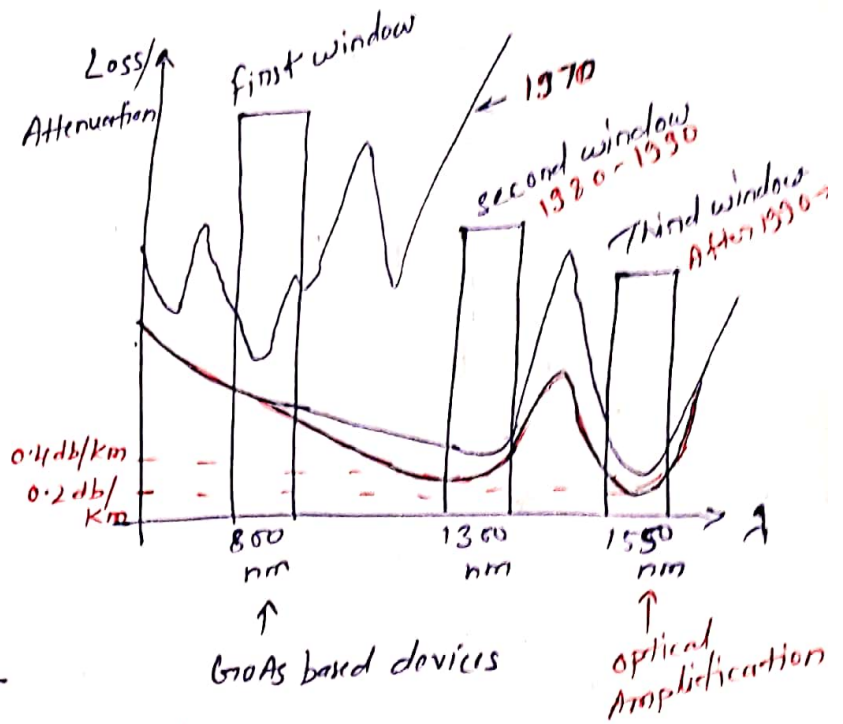 Loss/
Attenuation
First window
1970
second window
1980-1990
Third window
After 1990-
0.4db/km
0.2db/
km
800
nm
1300
nm
1550
nm
λ
GaAs based devices
optical
Amplification